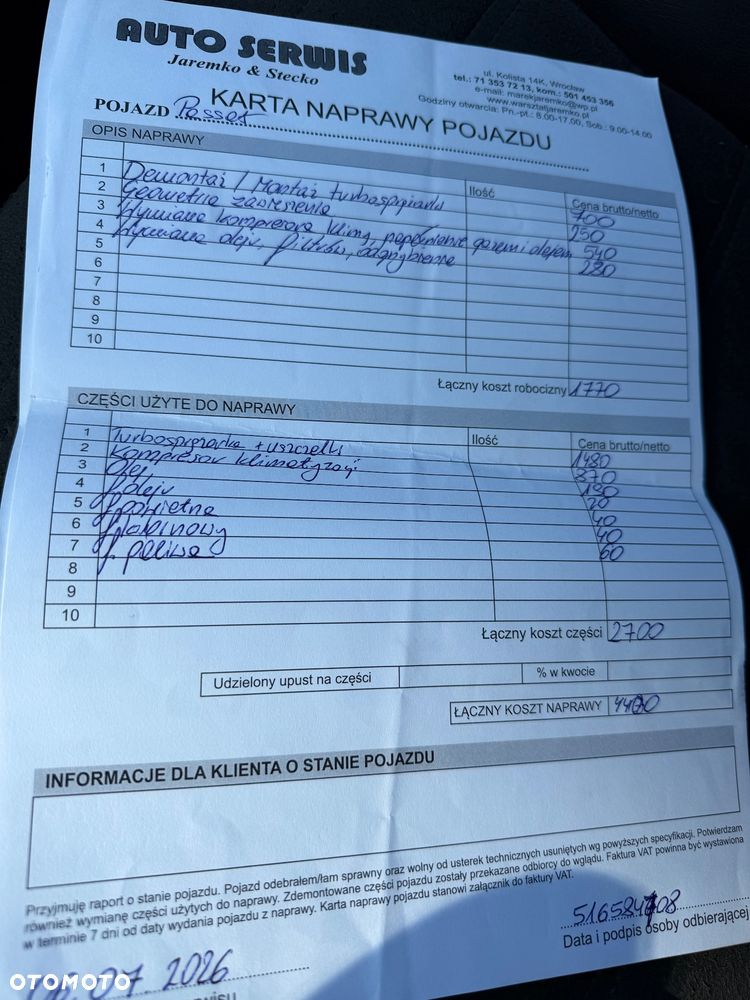 AUTO SERWIS
Jaremko & Stecko
ul. Kolista 14K, Wrocław
tel.: 71 353 72 13, kom.: 501 453 356
e-mail: marekjaremko@wp.pl
www.warsztatjaremko.pl
Godziny otwarcia: Pn.-pt.: 8.00-17.00, Sob.: 9.00-14.00
KARTA NAPRAWY POJAZDU
POJAZD Passat
OPIS NAPRAWY
Ilość Cena brutto/netto
1 Demontaż / Montaż turbosprężarki 700
2 Geometria zawieszenia 250
3 Wymiana kompresora klimy, napełnienie gazem i olejem 540
4 Wymiana oleju filtrów, odgrzybienie 280
5
6
7
8
9
10
Łączny koszt robocizny 1770
CZĘŚCI UŻYTE DO NAPRAWY
Ilość Cena brutto/netto
1 Turbosprężarka + uszczelki 1480
2 Kompresor klimatyzacji 870
3 Olej 190
4 f. oleju 20
5 f. powietrza 40
6 f. kabinowy 40
7 f. paliwa 60
8
9
10
Łączny koszt części 2700
Udzielony upust na części % w kwocie
ŁĄCZNY KOSZT NAPRAWY
INFORMACJE DLA KLIENTA O STANIE POJAZDU
Przyjmuję raport o stanie pojazdu. Pojazd odebrałem/łam sprawny oraz wolny od usterek technicznych usuniętych wg powyższych specyfikacji. Potwierdzam
również wymianę części użytych do naprawy. Zdemontowane części pojazdu zostały przekazane odbiorcy do wglądu. Faktura VAT powinna być wystawiona
w terminie 7 dni od daty wydania pojazdu z naprawy. Karta naprawy pojazdu stanowi załącznik do faktury VAT.
Data i podpis osoby odbierającej
07. 2026
OTOMOTO